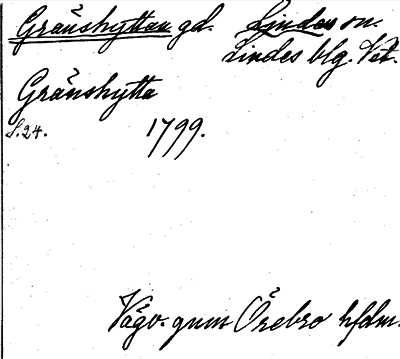 Gränshyttan gd. Lindes sn.
Lindes blg. Vstm.
Gränshytta
S. 24. 1799.
Vägv. gnm Örebro hfdm.